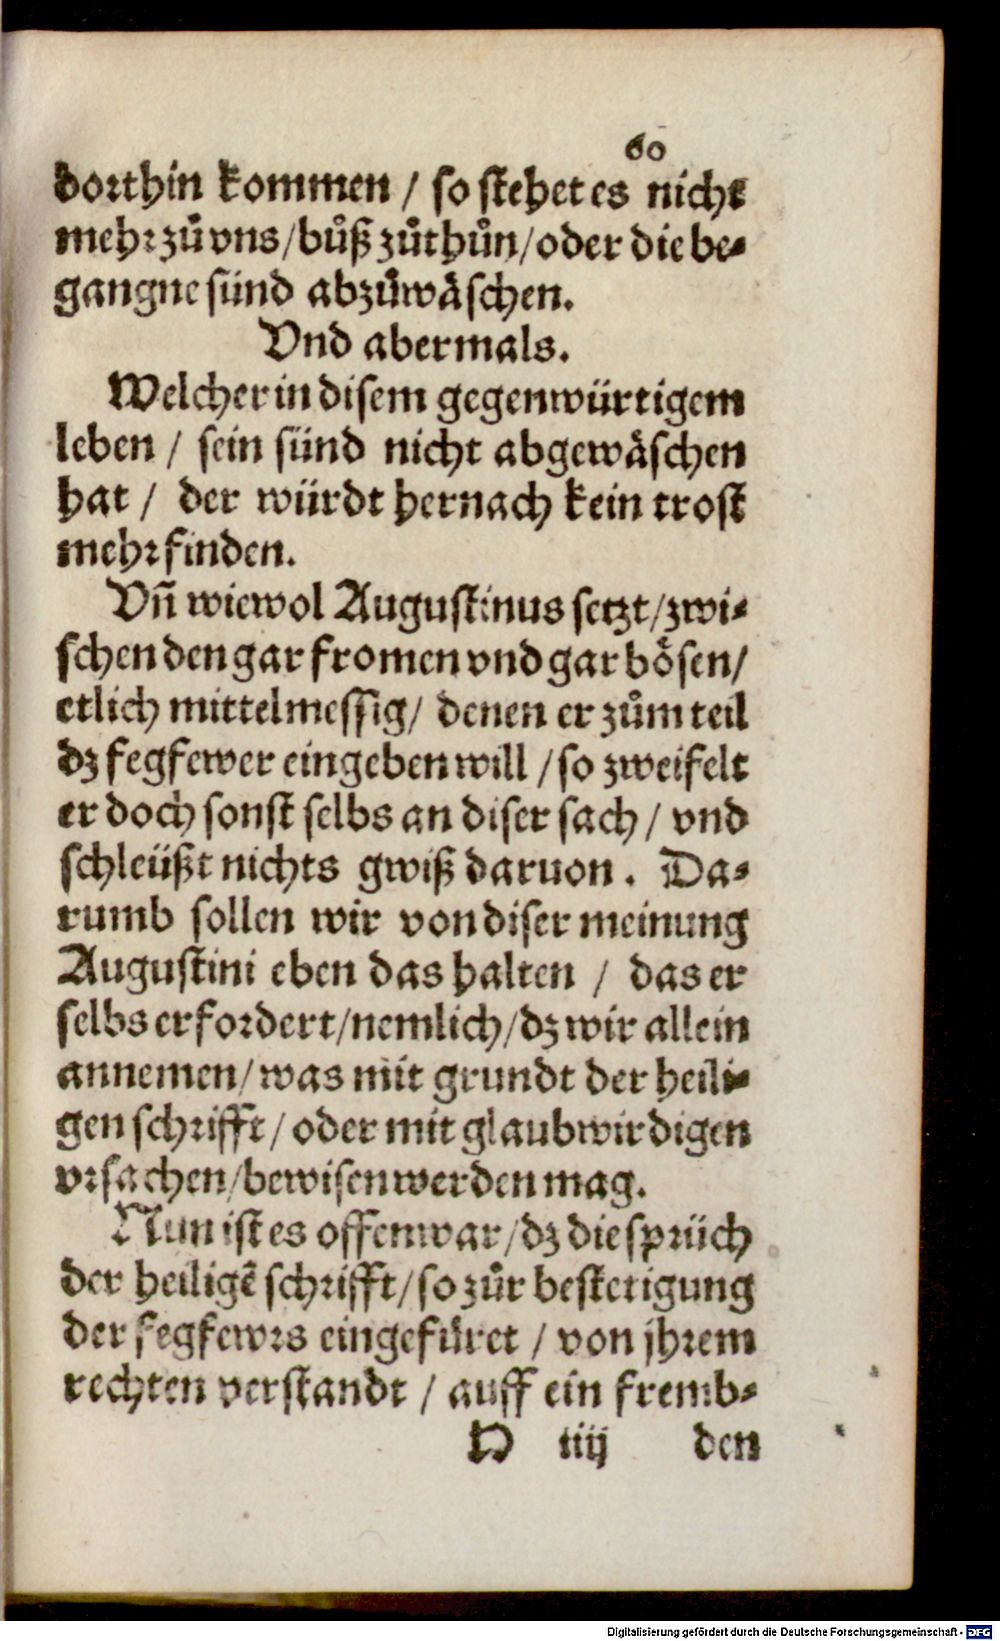 60
dorthin kommen / so stehet es nicht
mehr zů vns / bůß zůthůn / oder die be-
gangne sünd abzůwäschen.
Vnd abermals.
Welcher in disem gegenwürtigem
leben / sein sünd nicht abgewäschen
hat / der würdt hernach kein trost
mehr finden.
Vn̄ wiewol Augustinus setzt / zwi-
schen den gar fromen vnd gar bösen /
etlich mittelmessig / denen er zům teil
dz fegfewer eingeben will / so zweifelt
er doch sonst selbs an diser sach / vnd
schleüßt nichts gwiß daruon. Da-
rumb sollen wir von diser meinung
Augustini eben das halten / das er
selbs erfordert / nemlich / dz wir allein
annemen / was mit grundt der heili-
gen schrifft / oder mit glaubwirdigen
vrsachen / bewisen werden mag.
Nun ist es offenwar / dz die sprüch
der heiligē schrifft / so zůr bestetigung
der fegfewrs eingefüret / von jhrem
rechten verstandt / auff ein fremb-
H iiij den
Digitalisierung gefördert durch die Deutsche Forschungsgemeinschaft - DFG